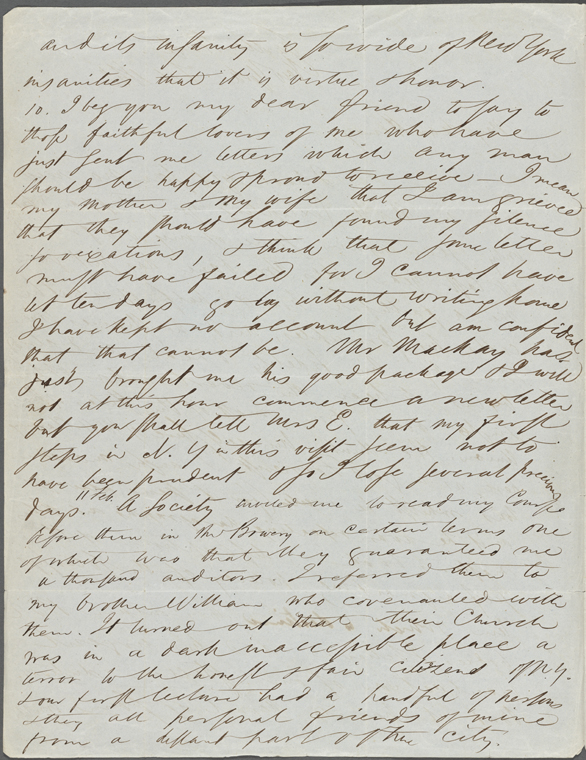 and its insanity is so wide of New York
insanities that it is virtue & honor.
10. I beg you my dear friend to say to
those faithful lovers of me who have
just sent me letters which any man
should be happy & proud to receive — I mean
my mother & my wife that I am grieved
that they should have found my silence
so vexatious, & think that some letter
must have failed for I cannot have
let ten days go by without writing home
I have kept no account but am confident
that that cannot be. Mr Mackay has
just brought me his good package & I will
not at this hour commence a new letter
but you shall tell Mrs E. that my first
steps in N. Y. in this visit seem not to
have been prudent & so I lose several precious
days. 11 Feb. A Society invited me to read my Course
before them in the Bowery on certain terms one
of which was that they guaranteed me
a thousand auditors. I referred them to
my brother William who covenanted with
them. It turned out that their Church
was in a dark inaccessible place a
terror to the honest & fair citizens of N.Y.
& our first lecture had a handful of persons
& they all personal friends of mine
from a distant part of the city.